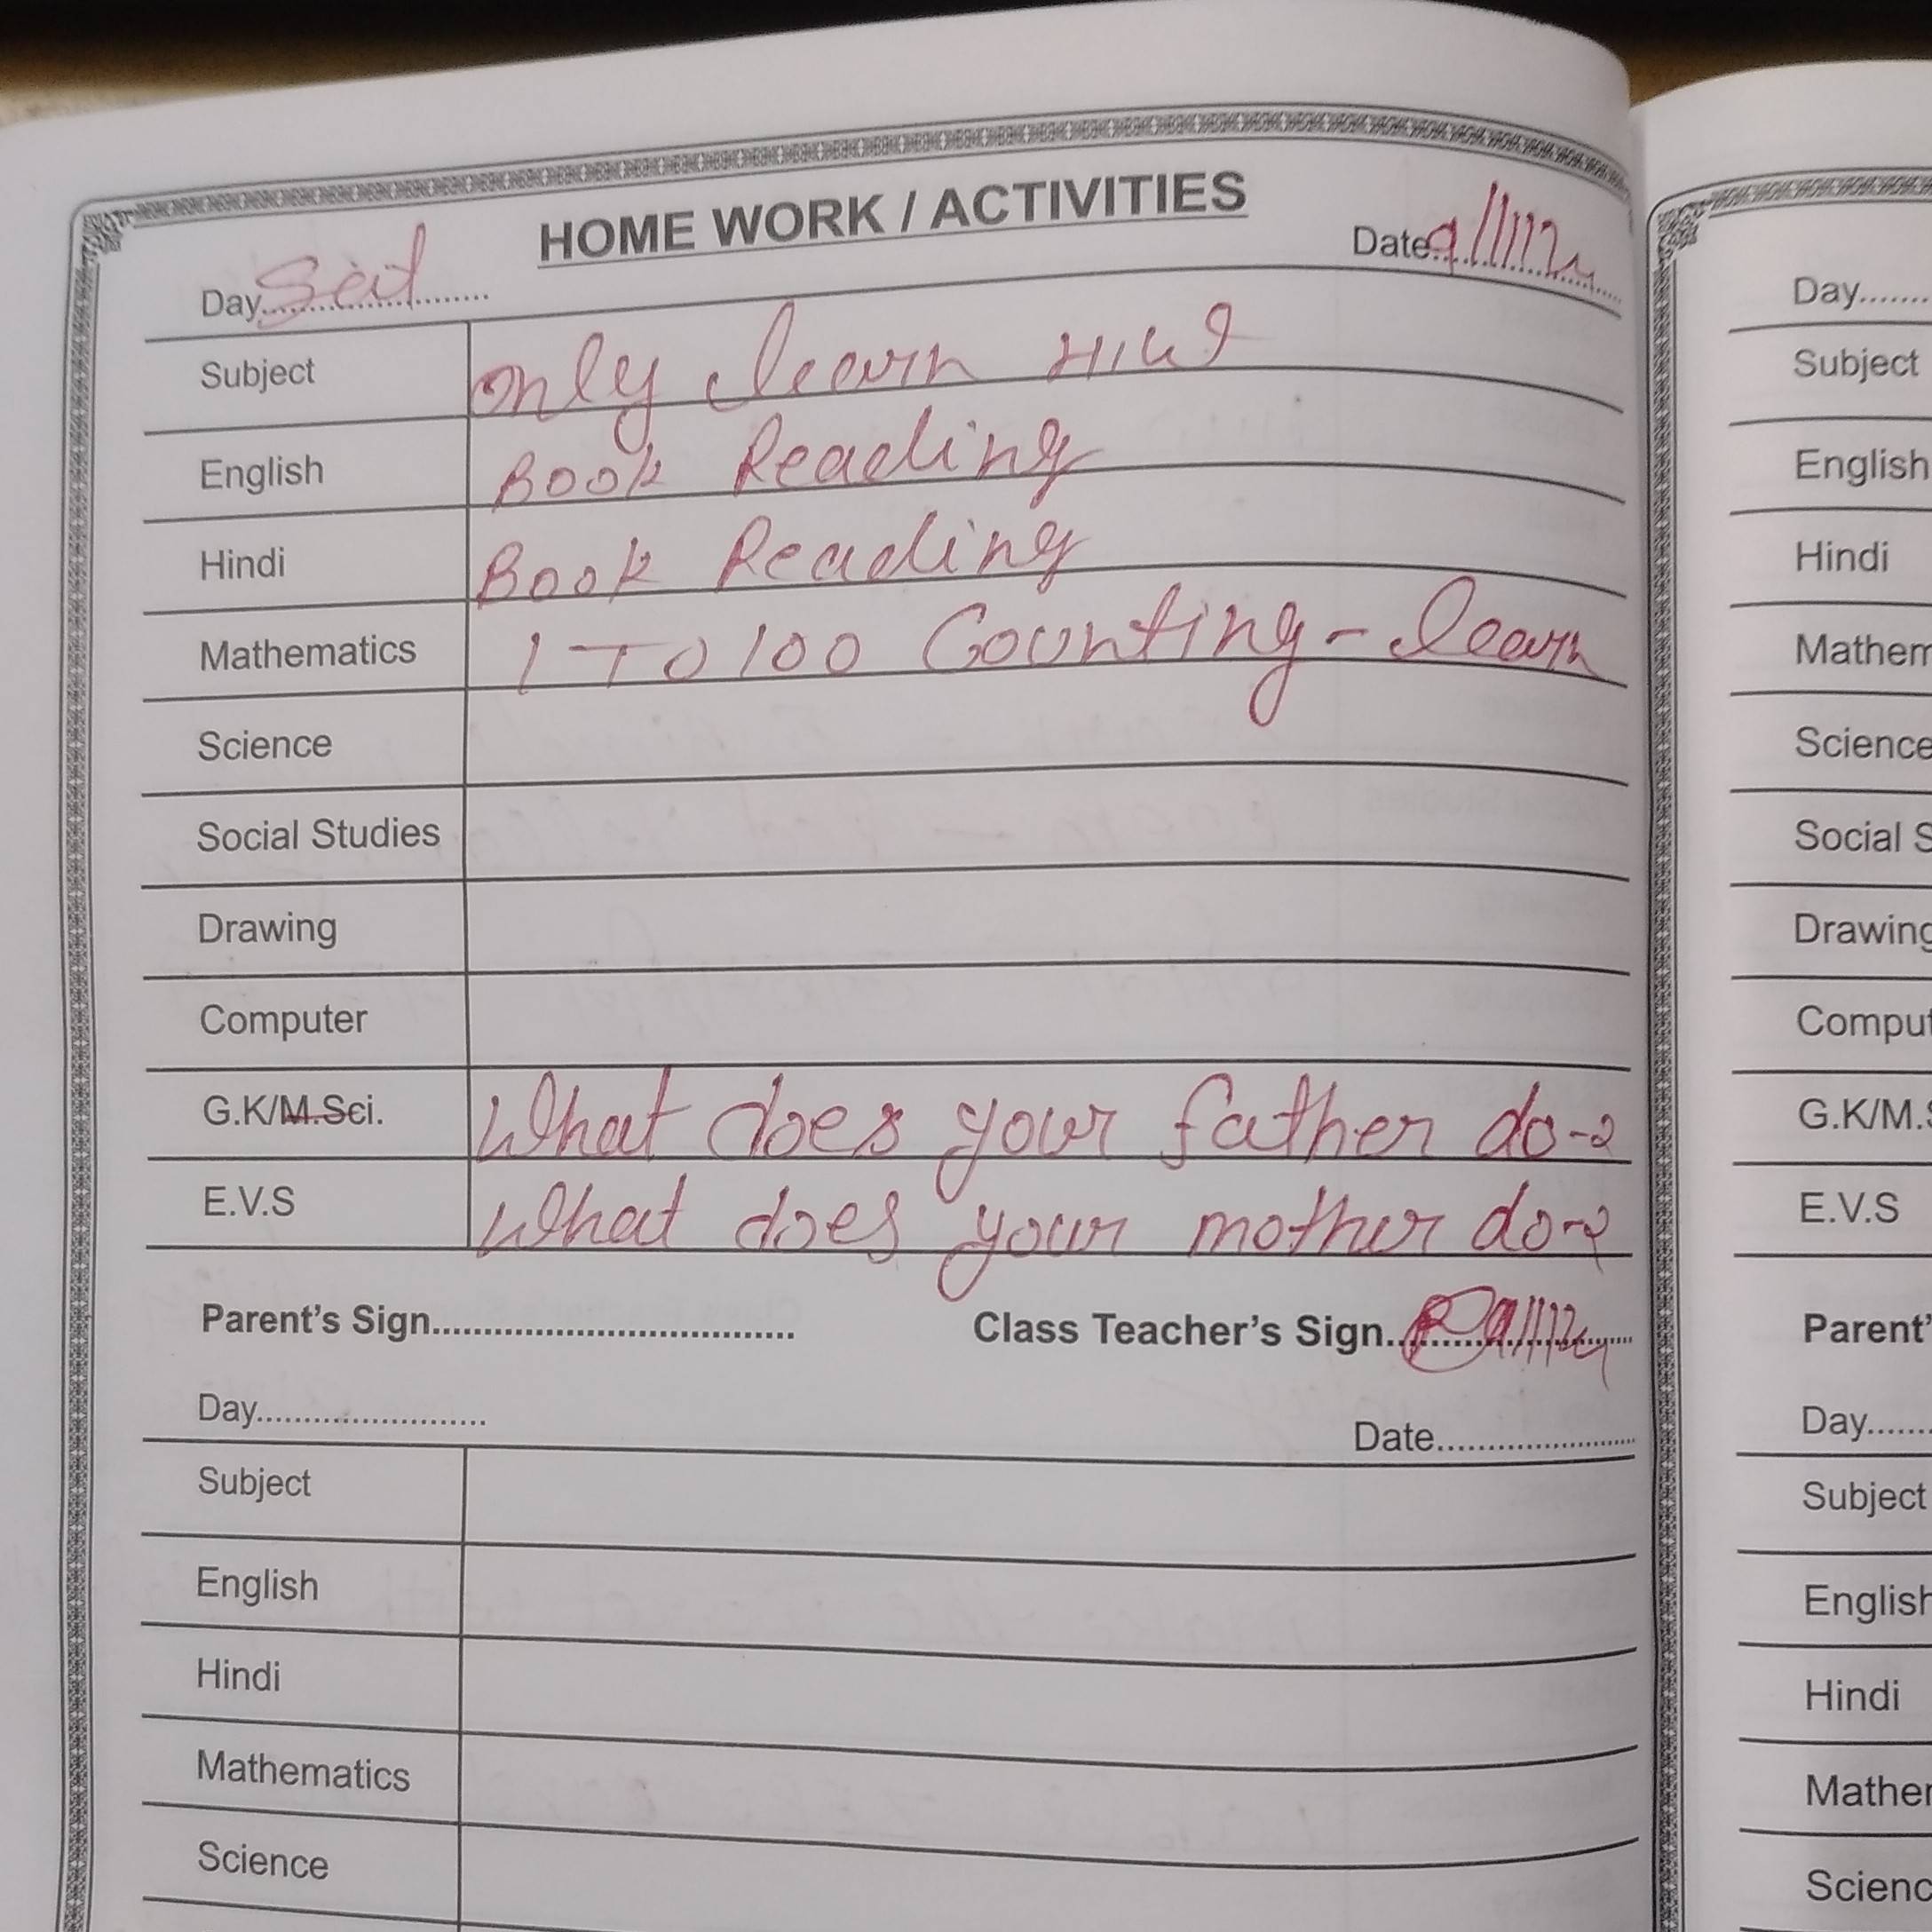 HOME WORK / ACTIVITIES
Day Sat Date 9/11/2
Subject only learn H.W
English Book Reading
Hindi Book Reading
Mathematics 1 TO 100 Counting - learn
Science
Social Studies
Drawing
Computer
G.K/M.Sci. What does your father do-?
E.V.S What does your mother do-?
Parent's Sign Class Teacher's Sign
Day Date
Subject
English
Hindi
Mathematics
Science
Day
Subject
English
Hindi
Mathem
Science
Social S
Drawing
Comput
G.K/M.S
E.V.S
Parent'
Day
Subject
English
Hindi
Mather
Scienc